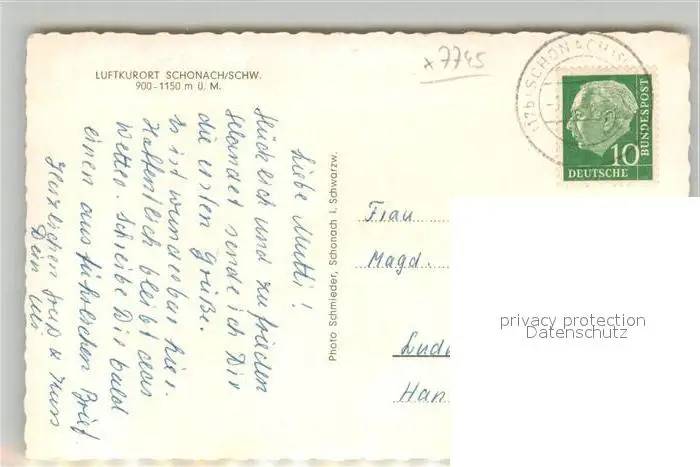 LUFTKURORT SCHONACH/SCHW.
900-1150 m ü. M.
x7745
(17b) SCHONACH
10
DEUTSCHE
BUNDESPOST
Liebe Mutti!
Glücklich und zufrieden
gelandet sende ich Dir
die ersten Grüße.
Es ist wunderbar hier.
Hoffentlich bleibt das
Wetter. Schreibe Dir bald
einen ausführlichen Brief.
Herzlichen Gruß u Kuss
Dein
Photo Schmieder, Schonach i. Schwarzw.
Frau
Magd.
Ludw
Han
privacy protection
Datenschutz